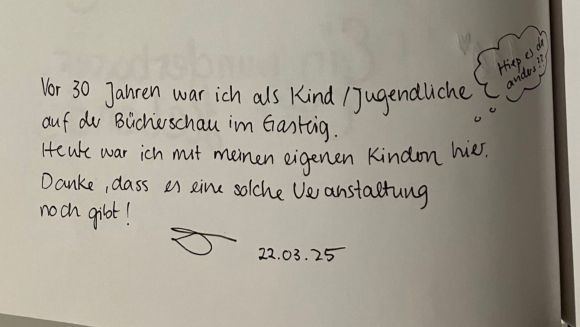 Vor 30 Jahren war ich als Kind/Jugendliche
auf der Bücherschau im Gasteig.
Heute war ich mit meinen eigenen Kindern hier.
Danke, dass es eine solche Veranstaltung
noch gibt!
22.03.25
Hieß es da
anders??